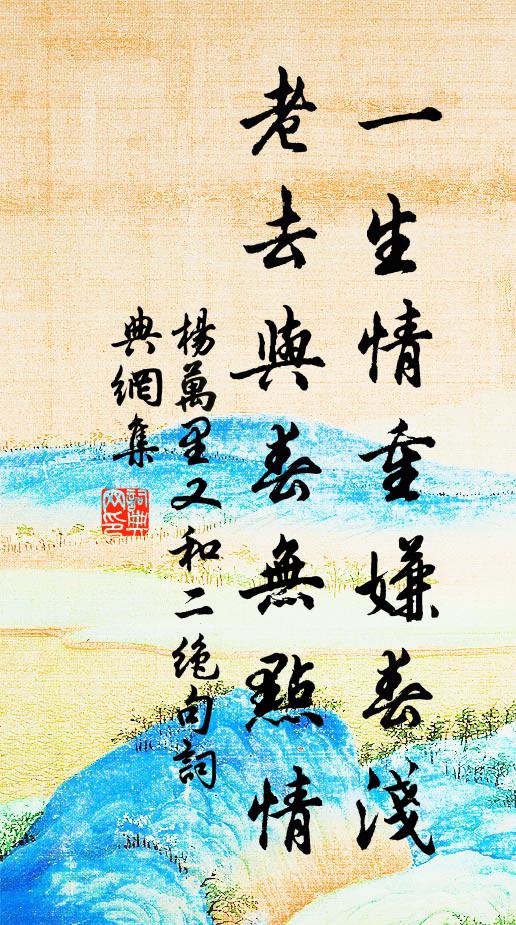 一生情重嫌春淺
老去與春無點情
楊萬里又和二絕句詞
典網集
詞典網印